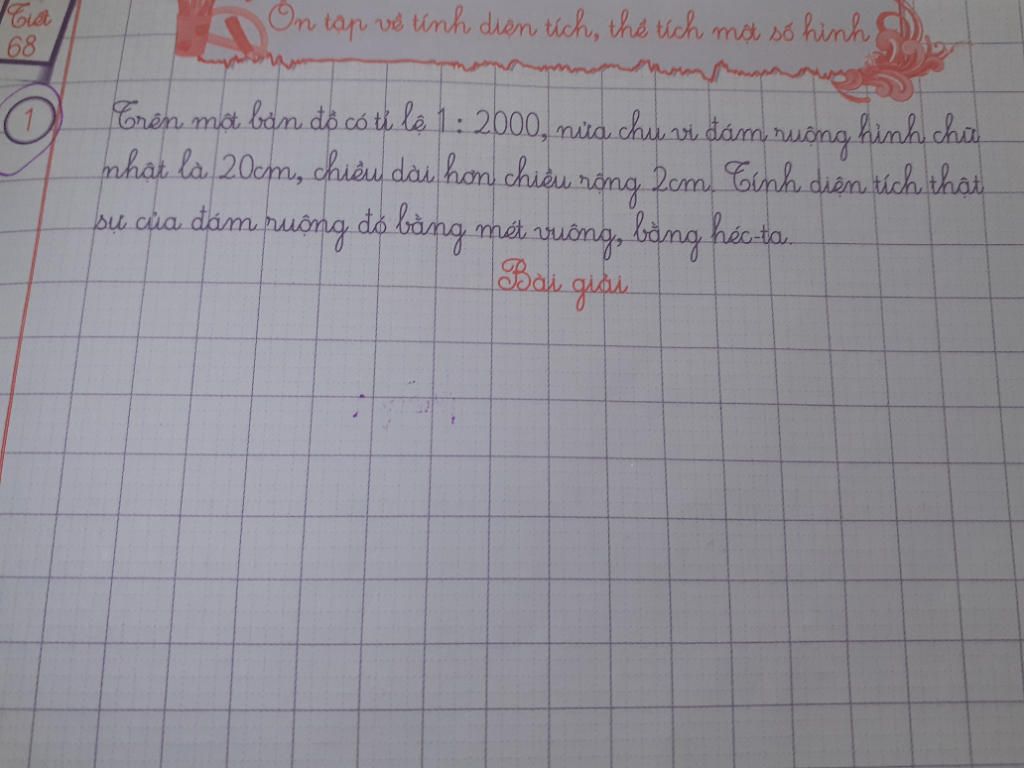 Tiết
68
Ôn tập về tính diện tích, thể tích một số hình
1
Trên một bản đồ có tỉ lệ 1 : 2000, nửa chu vi đám ruộng hình chữ
nhật là 20cm, chiều dài hơn chiều rộng 2cm. Tính diện tích thật
sự của đám ruộng đó bằng mét vuông, bằng héc-ta.
Bài giải